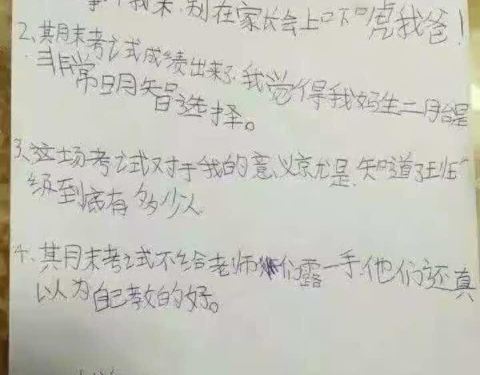 我来,别在家长会上吓唬我爸!
2、期末考试成绩出来了,我觉得我妈生二胎是
非常明智选择。
3、这场考试对于我的意义就是,知道了班
级到底有多少人
4、期末考试不给老师们露一手,他们还真
以为自己教的好。